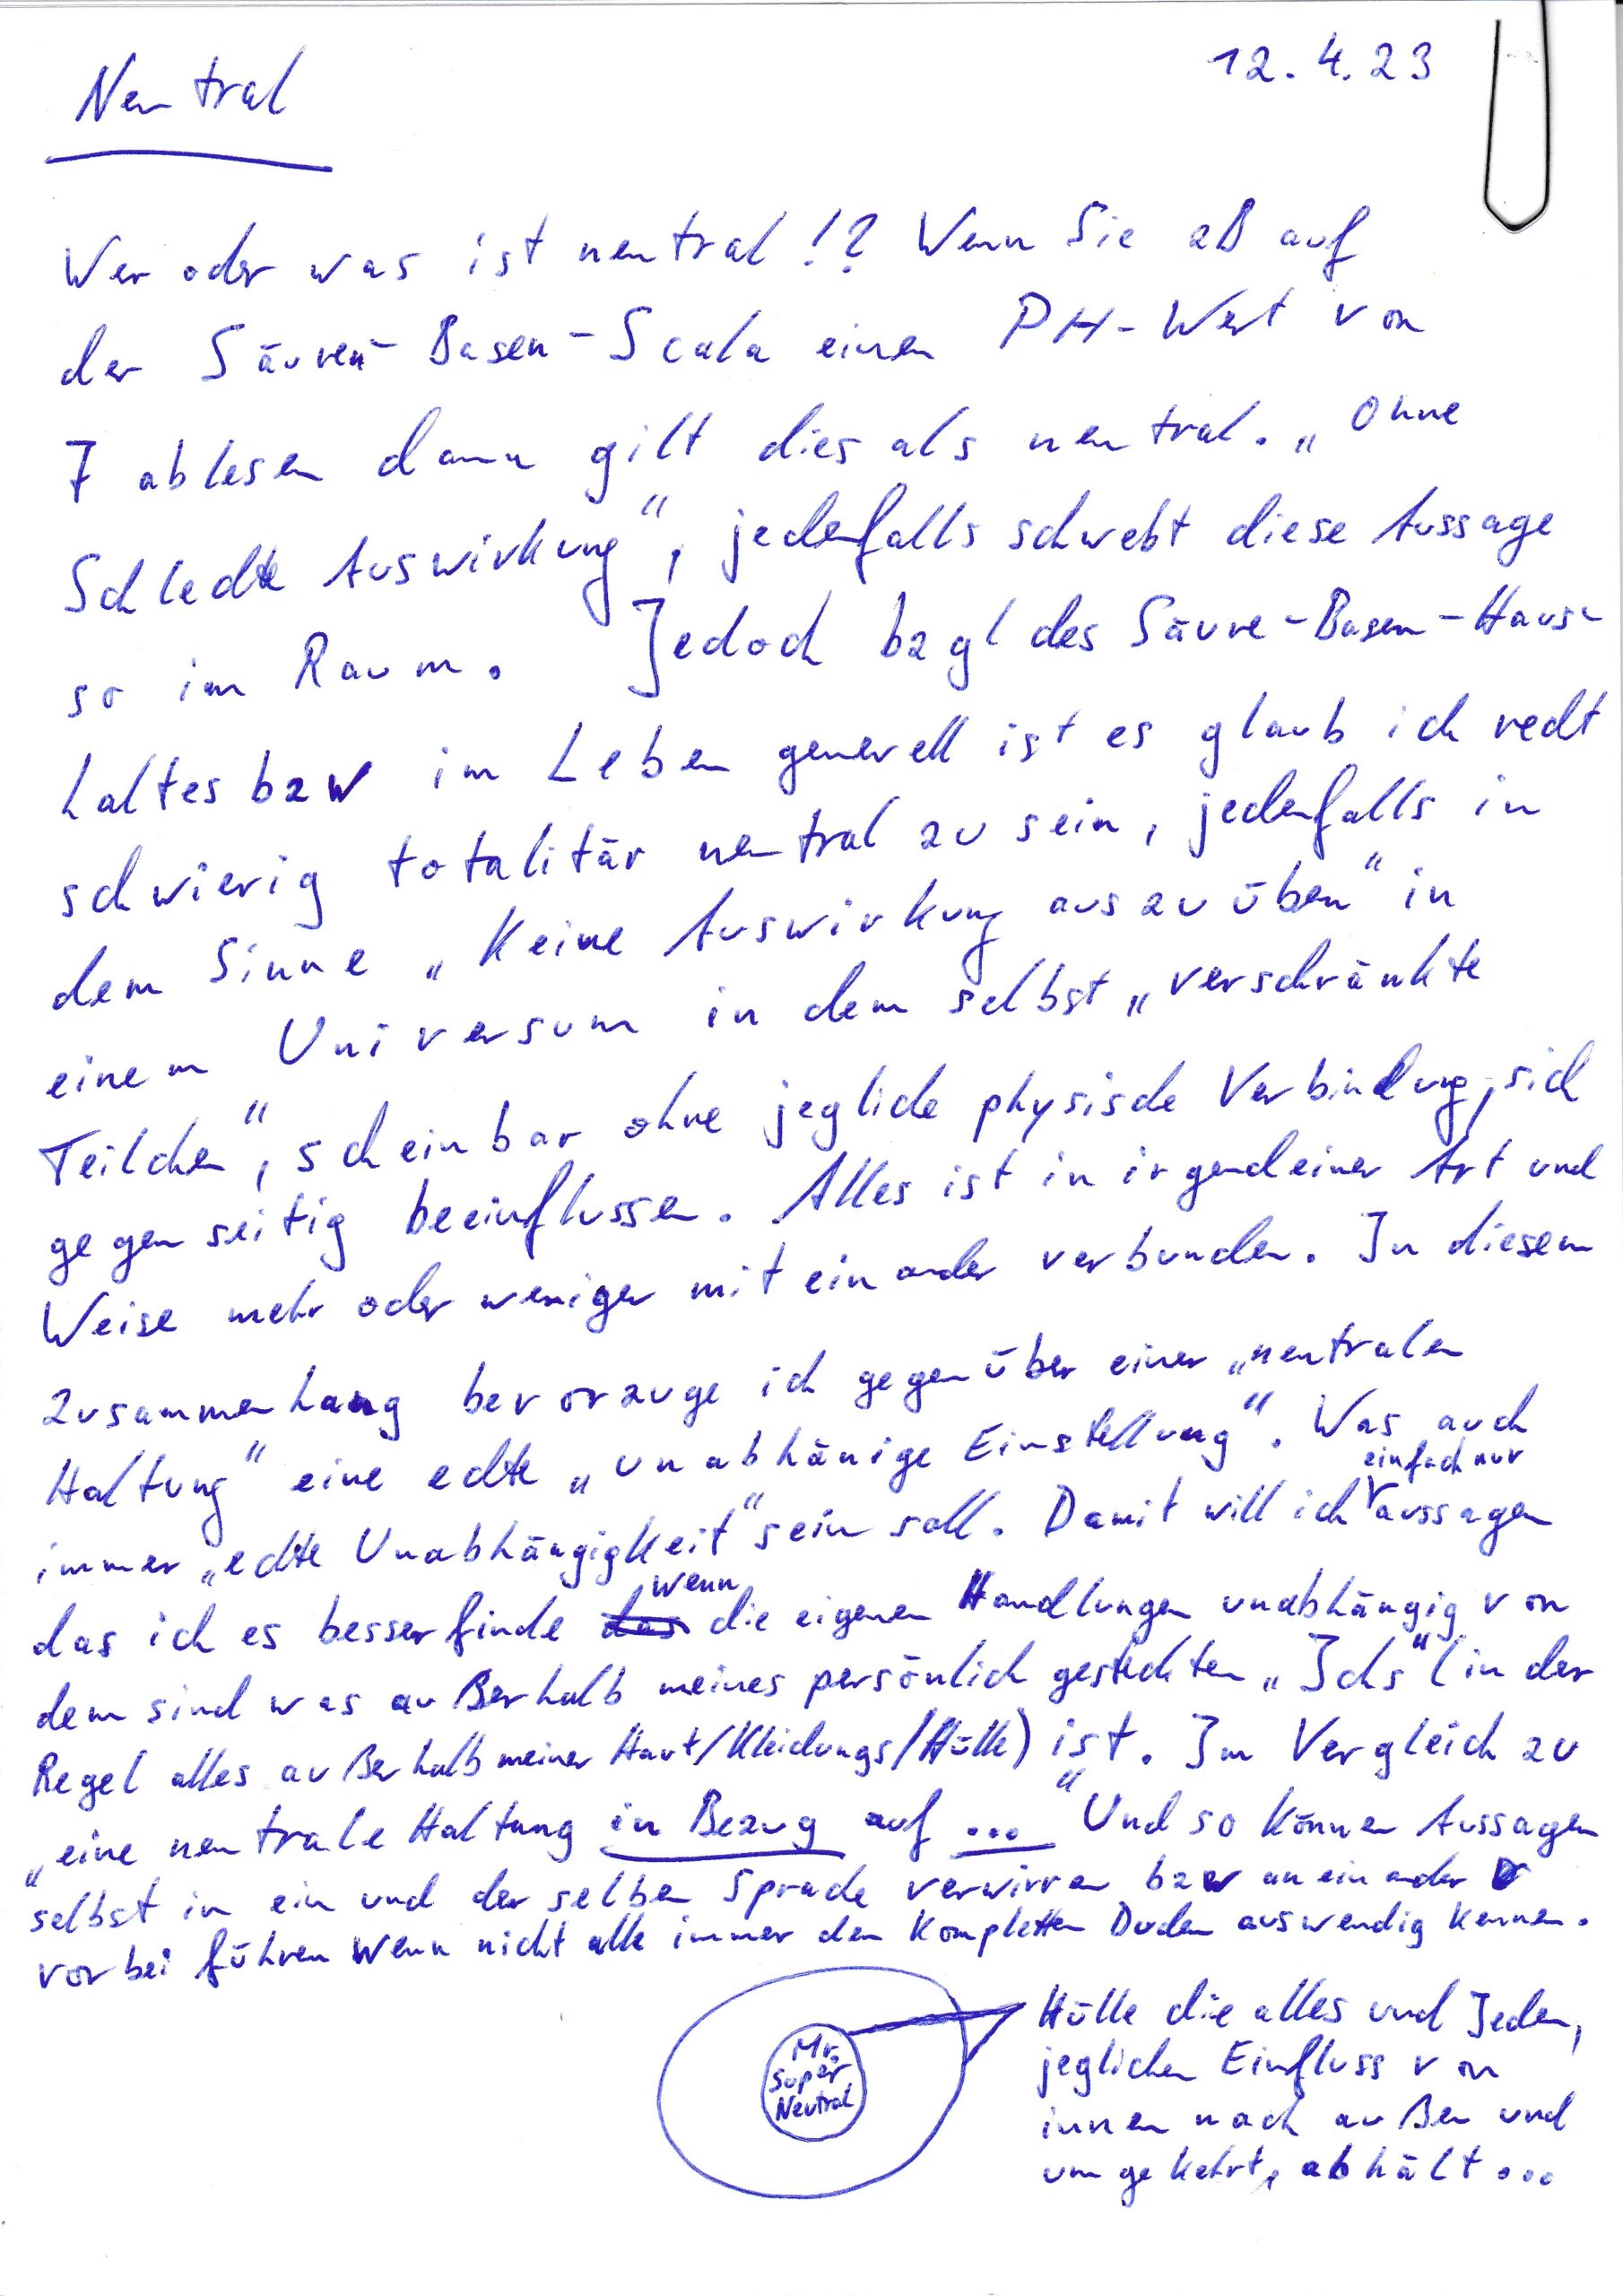 Neutral
12.4.23
Wer oder was ist neutral!? Wenn Sie zB auf
der Säuren-Basen-Scala einen PH-Wert von
7 ablesen dann gilt dies als neutral. „Ohne
Schlechte Auswirkung“, jedenfalls schwebt diese Aussage
so im Raum. Jedoch bzgl des Säure-Basen-Haus-
haltes bzw im Leben generell ist es glaub ich recht
schwierig totalitär neutral zu sein, jedenfalls in
dem Sinne „Keine Auswirkung auszuüben“ in
einem Universum in dem selbst „verschränkte
Teilchen“, scheinbar ohne jegliche physische Verbindung, sich
gegenseitig beeinflussen. Alles ist in irgendeiner Art und
Weise mehr oder weniger miteinander verbunden. In diesem
Zusammenhang bevorzuge ich gegenüber einer „neutralen
Haltung“ eine echte „unabhänige Einstellung“. Was auch
immer „echte Unabhängigkeit“ sein soll. Damit will ich einfach nur aussagen
das ich es besser finde das wenn die eigenen Handlungen unabhängig von
dem sind was außerhalb meines persönlich gesteckten „Ichs“ (in der
Regel alles außerhalb meiner Haut/Kleidungs/Hülle) ist. Im Vergleich zu
„eine neutrale Haltung in Bezug auf ...“ Und so können Aussagen
selbst in ein und der selben Sprache verwirren bzw aneinander
vorbei führen wenn nicht alle immer den kompletten Duden auswendig kennen.
Mr.
Super
Neutral
Hülle die alles und Jeden,
jeglichen Einfluss von
innen nach außen und
umgekehrt, abhält...